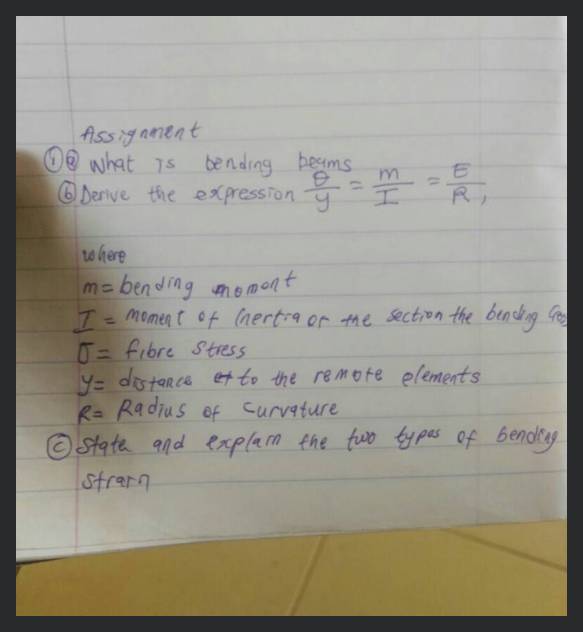 Assignment
① ⓐ What is bending beams
ⓑ Derive the expression θ/y = m/I = E/R,
where
m = bending moment
I = moment of inertia of the section the bending
σ = fibre stress
y = distance to the remote elements
R = Radius of curvature
ⓒ State and explain the two types of bending
strain